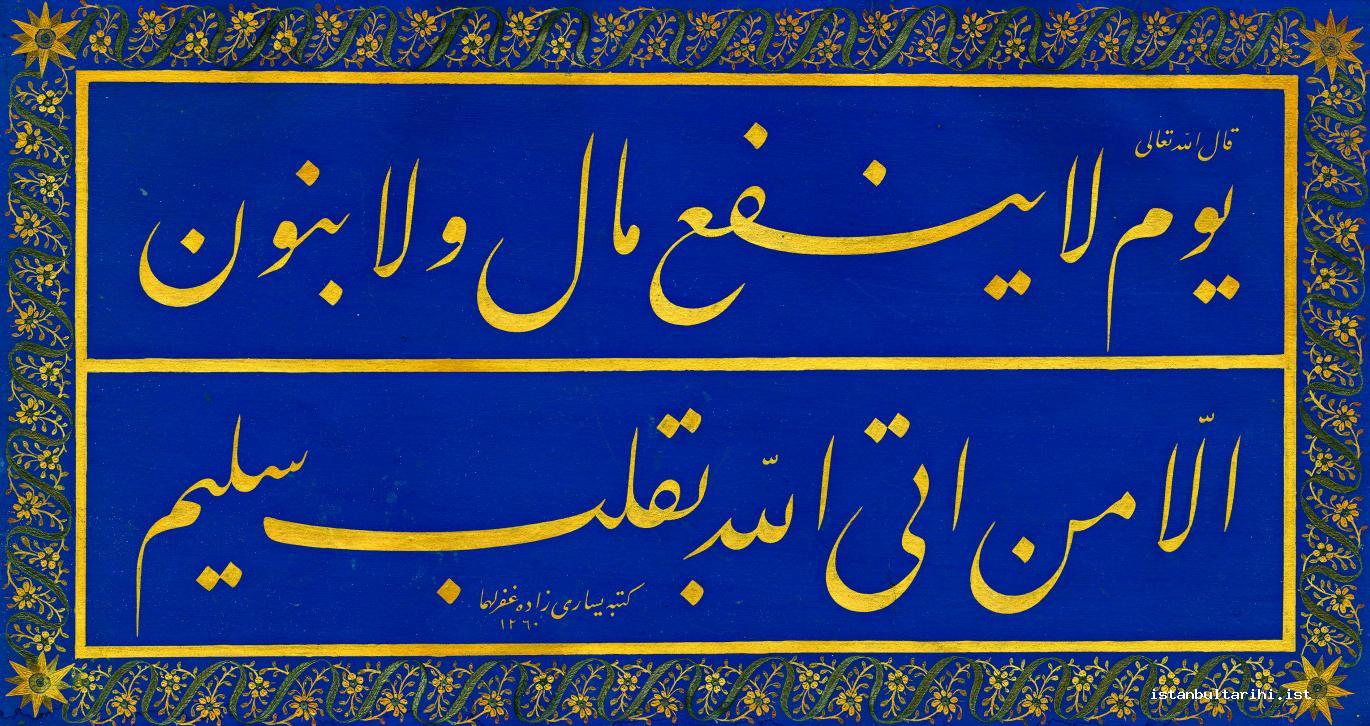 قال الله تعالى
يوم لا ينفع مال ولا بنون
الّا من اتى اللّه بقلب سليم
كتبه يسارى زاده غفر لهما
١٢٦٠
istanbultarihi.ist